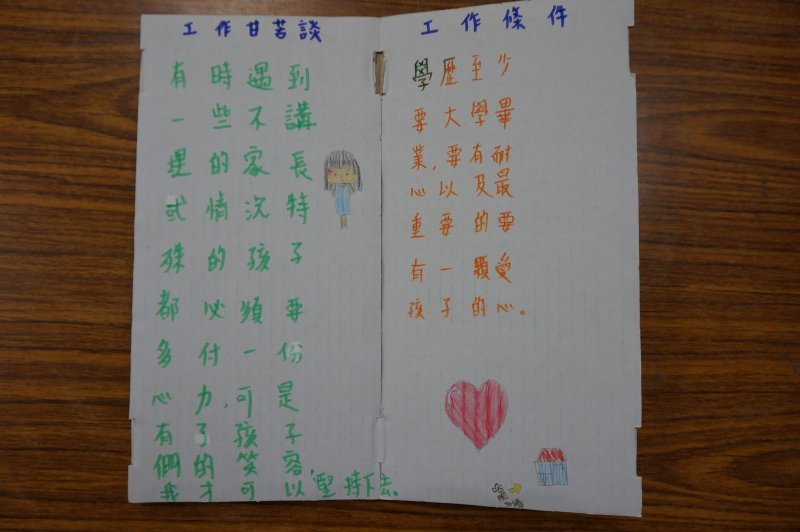 工作甘苦談
有時遇到
一些不講
理的家長
或情況特
殊的孩子
都必須要
多付一份
心力,可是
有了孩子
們的笑容
我才可以堅持下去。
工作條件
學歷至少
要大學畢
業,要有耐
心以及最
重要的要
有一顆愛
孩子的心。